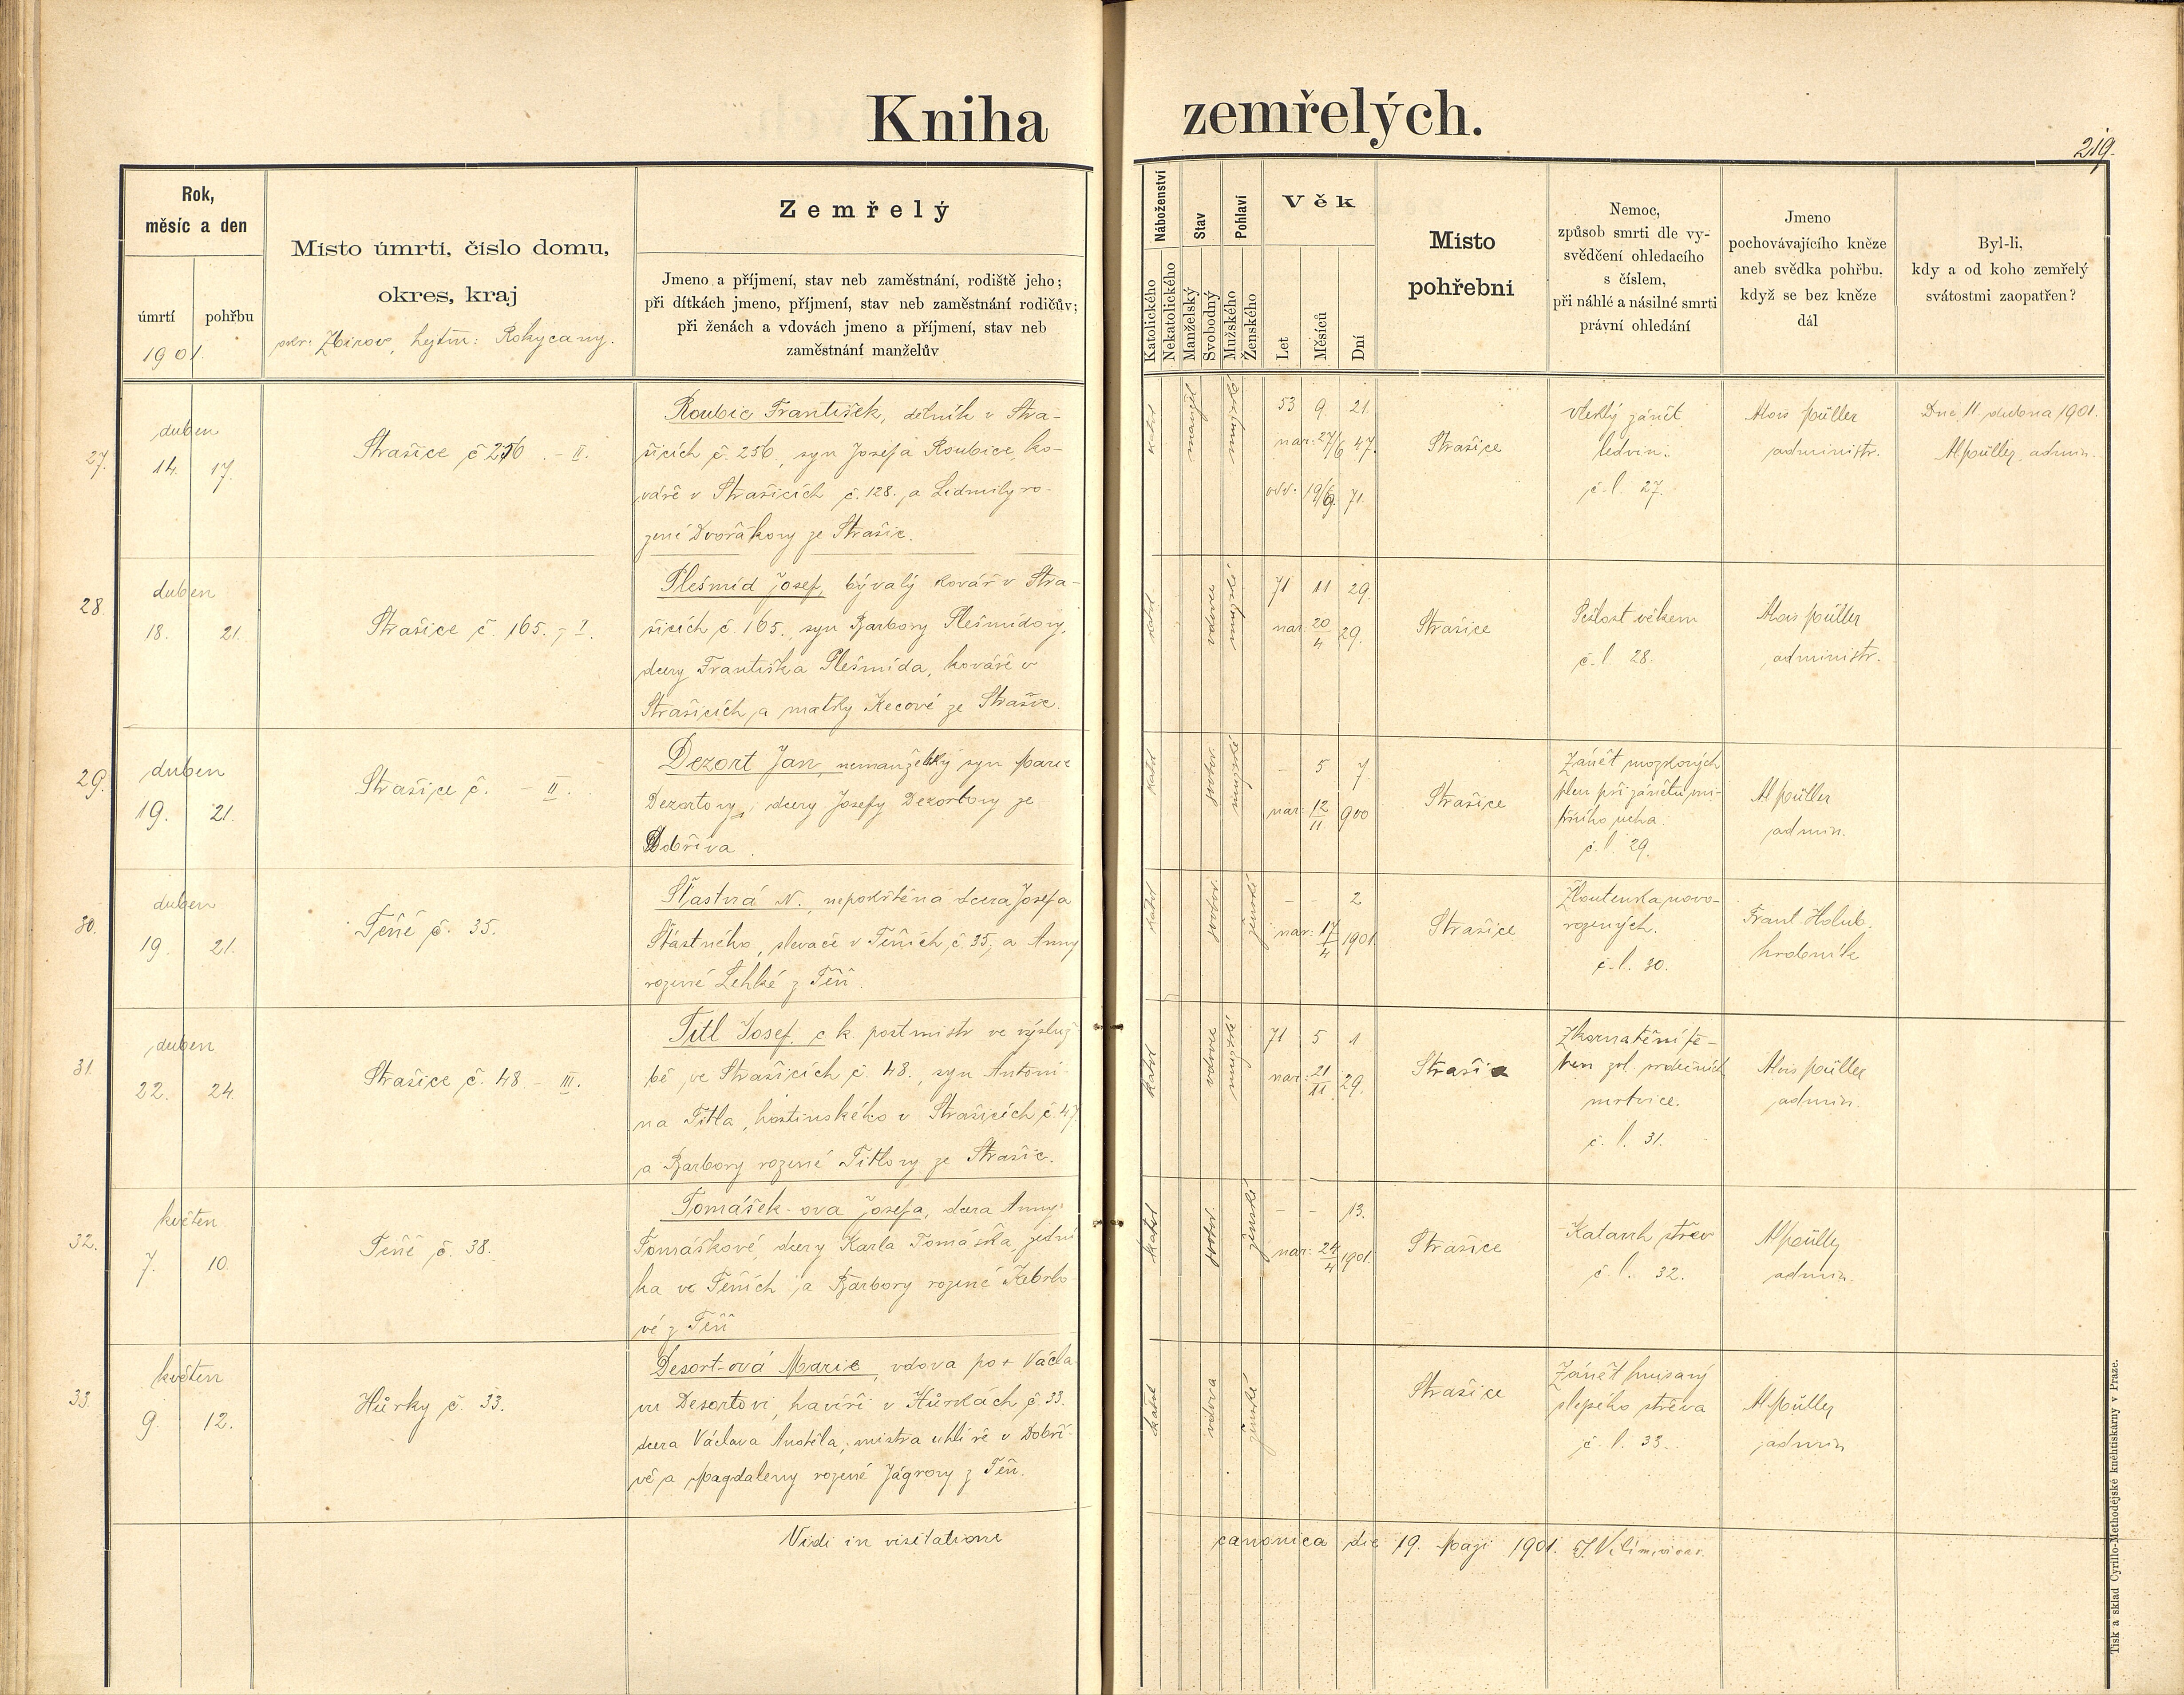 Kniha zemřelých.
219.
Rok,
měsíc a den
úmrtí
pohřbu
1901.
Místo úmrtí, číslo domu,
okres, kraj
okr: Zbirov, hejtm: Rokycany.
Zemřelý
Jmeno a příjmení, stav neb zaměstnání, rodiště jeho;
při dítkách jmeno, příjmení, stav neb zaměstnání rodičův;
při ženách a vdovách jmeno a příjmení, stav neb
zaměstnání manželův
Náboženství
Katolického
Nekatolického
Stav
Manželský
Svobodný
Pohlaví
Mužského
Ženského
Věk
Let
Měsíců
Dní
Místo
pohřební
Nemoc,
způsob smrti dle vy-
svědčení ohledacího
s číslem,
při náhlé a násilné smrti
právní ohledání
Jmeno
pochovávajícího kněze
aneb svědka pohřbu.
když se bez kněze
dál
Byl-li,
kdy a od koho zemřelý
svátostmi zaopatřen?
27.
duben
14. 17.
Strašice č 256 . - II.
Roubic František, dělník v Stra-
šicích č. 256, syn Josefa Roubice, ko-
váře v Strašicích č. 128. a Lidmily ro-
zené Dvořákovy ze Strašic.
katol
manžel
mužské
53 9. 21.
nar: 27/6 47.
odd. 19/9. 71.
Strašice
vleklý zánět
ledvin.
č. l. 27.
Alois Müller
administr.
Dne 11. dubna 1901.
Al Müller, admin.
28.
duben
18. 21.
Strašice č. 165. - I.
Plešmíd Josef, bývalý kovář v Stra-
šicích č 165., syn Barbory Plešmídovy,
dcery Františka Plešmída, kováře v
Strašicích, a matky Kecové ze Strašic.
katol
vdovec
mužské
71 11 29.
nar: 20/4 29.
Strašice
Sešlost věkem
č. l. 28.
Alois Müller
administr.
29.
duben
19. 21.
Strašice č. - II.
Dezort Jan, nemanželský syn Marie
Dezortovy, dcery Josefy Dezortovy ze
Dobříva.
katol
svobod.
mužské
- 5 7
nar: 12/11 900
Strašice
Zánět mozkových
blan při zánětu vni-
třního ucha.
č. l. 29.
Al Müller
admin.
30.
duben
19. 21.
Těně č. 35.
Šťastná N., nepokřtěná dcera Josefa
Šťastného, slevače v Těních č. 35, a Anny
rozené Lehké z Těň.
katol
svobod.
ženské
- - 2
nar: 17/4 1901
Strašice
Žloutenka novo-
rozených.
č. l. 30.
Frant Holub.
hrobník
31.
duben
22. 24.
Strašice č. 48 - III.
Titl Josef, c k. postmistr ve výsluž-
bě ve Strašicích č. 48., syn Antoni-
na Titla, hostinského v Strašicích č. 47.
a Barbory rozené Titlovy ze Strašic.
katol
vdovec
mužské
71 5 1
nar: 21/11 29.
Strašice
Zkornatění te-
pen
mrtvice.
č. l. 31.
Alois Müller
admin.
32.
květen
7. 10.
Těně č. 38.
Tomášek-ova Josefa, dcera Anny
Tomáškové, dcery Karla Tomáška,
ka ve Těních a Barbory rozené Kebrlo-
vé z Těň
katol
svobod.
ženské
- - 13.
nar: 24/4 1901.
Strašice
Katarrh střev
č. l. 32.
Al Müller
admin.
33.
květen
9. 12.
Hůrky č. 33.
Desort-ová Marie, vdova po + Václa-
vu Desortovi, havíři v Hůrkách č. 33.
dcera Václava Anděla, mistra uhlíře v Dobří-
vě, a Magdaleny rozené Jägrovy z Těň.
katol
vdova
ženské
Strašice
Zánět hnisavý
slepého střeva
č. l. 33.
Al. Müller
admin
Vidi in visitatione canonica die 19. Maji 1901. J. Vilím, vicar.
Tisk a sklad Cyrillo-Methodějské knihtiskárny v Praze.